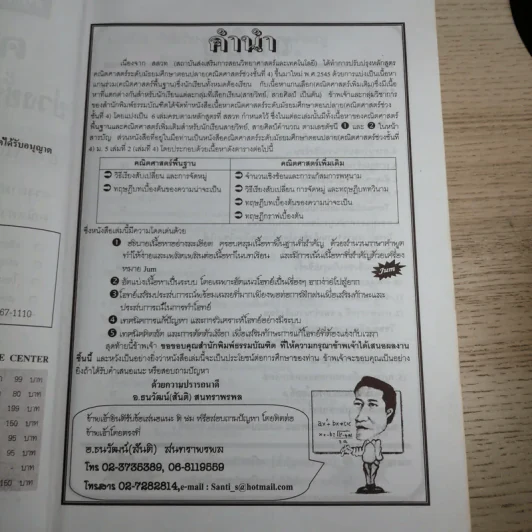 คำนำ
เนื่องจาก สสวท (สถาบันส่งเสริมการสอนวิทยาศาสตร์และเทคโนโลยี) ได้ทำการปรับปรุงหลักสูตร
คณิตศาสตร์ระดับมัธยมศึกษาตอนปลาย(คณิตศาสตร์ช่วงชั้นที่ 4) ขึ้นมาใหม่ พ.ศ 2545 ด้วยการแบ่งเป็นเนื้อหา
แกนร่วมคณิตศาสตร์พื้นฐานซึ่งนักเรียนทั้งหมดต้องเรียน กับเนื้อหาแกนเลือก(คณิตศาสตร์เพิ่มเติม)ซึ่งมีเนื้อ
หาที่แตกต่างกันสำหรับนักเรียนแต่ละกลุ่มที่เลือกเรียน(สายวิทย์, สายศิลป์ เป็นต้น) ข้าพเจ้าและกลุ่มวิชาการ
ของสำนักพิมพ์ธรรมบัณฑิตได้จัดทำหนังสือเนื้อหาคณิตศาสตร์ระดับมัธยมศึกษาตอนปลาย(คณิตศาสตร์ช่วง
ชั้นที่ 4) โดยแบ่งเป็น 6 เล่มครบตามหลักสูตรที่ สสวท กำหนดไว้ ซึ่งในแต่ละเล่มนั้นมีทั้งเนื้อหาของคณิตศาสตร์
พื้นฐานและคณิตศาสตร์เพิ่มเติมสำหรับนักเรียนสายวิทย์, สายศิลป์คำนวณ ตามเลขดัชนี ❶ และ ❷ ในหน้า
สารบัญ ส่วนหนังสือที่อยู่ในมือท่านเป็นหนังสือเนื้อหาคณิตศาสตร์ระดับมัธยมศึกษาตอนปลาย(คณิตศาสตร์ช่วงชั้นที่
4) ม. 5 เล่มที่ 2 (เล่มที่ 4) โดยประกอบด้วยเนื้อหาดังตารางต่อไปนี้
คณิตศาสตร์พื้นฐาน คณิตศาสตร์เพิ่มเติม
➲ วิธีเรียงสับเปลี่ยน และการจัดหมู่ ➲ จำนวนเชิงซ้อนและการแก้สมการพหุนาม
➲ ทฤษฎีเบื้องต้นของความน่าจะเป็น ➲ วิธีเรียงสับเปลี่ยน การจัดหมู่ และทฤษฎีบททวินาม
➲ ทฤษฎีเบื้องต้นของความน่าจะเป็น
➲ ทฤษฎีกราฟเบื้องต้น
ซึ่งหนังสือเล่มนี้มีความโดดเด่นด้วย
❶ อธิบายเนื้อหาอย่างละเอียด ครอบคลุมเนื้อหาพื้นฐานที่สำคัญ ด้วยสำนวนภาษาคำพูด
ทำให้ง่ายและเพลิดเพลินต่อเนื้อหาในบทเรียน และมีการเน้นเนื้อหาที่สำคัญด้วยเครื่อง
หมาย Jum
Jum
❷ จัดแบ่งเนื้อหาเป็นระบบ โดยเฉพาะจัดแนวโจทย์เป็นเรื่องๆ จากง่ายไปสู่ยาก
❸ โจทย์เสริมประสบการณ์พร้อมเฉลยที่มากเพียงพอต่อการฝึกฝนเพื่อเสริมทักษะและ
ประสบการณ์ในการทำโจทย์
❹ เทคนิคการแก้ปัญหา และการวิเคราะห์โจทย์อย่างมีระบบ
❺ เทคนิคคิดลัด และการตัดตัวเลือก เพื่อเสริมทักษะการแก้โจทย์ที่ต้องแข่งกับเวลา
สุดท้ายนี้ข้าพเจ้า ขอขอบคุณสำนักพิมพ์ธรรมบัณฑิต ที่ให้ความกรุณาข้าพเจ้าได้เสนอผลงาน
ชิ้นนี้ และหวังเป็นอย่างยิ่งว่าหนังสือเล่มนี้จะเป็นประโยชน์ต่อการศึกษาของท่าน ข้าพเจ้าจะขอบคุณเป็นอย่าง
ยิ่งถ้าได้รับคำเสนอแนะ หรือสอบถามปัญหา
ด้วยความปรารถนาดี
อ.ธนวัฒน์(สันติ) สนทราพรพล
ข้าพเจ้ายินดีรับข้อเสนอแนะ ติ ชม หรือสอบถามปัญหา โดยติดต่อ
ข้าพเจ้าโดยตรงที่
อ.ธนวัฒน์(สันติ) สนทราพรพล
โทร 02-3738389, 06-8119859
โทรสาร 02-7282814,e-mail : Santi_s@hotmail.com
ได้รับอนุญาต
67-1110
E CENTER
99 บาท
80 บาท
199 บาท
150 บาท
95 บาท
95 บาท
- บาท
150 บาท